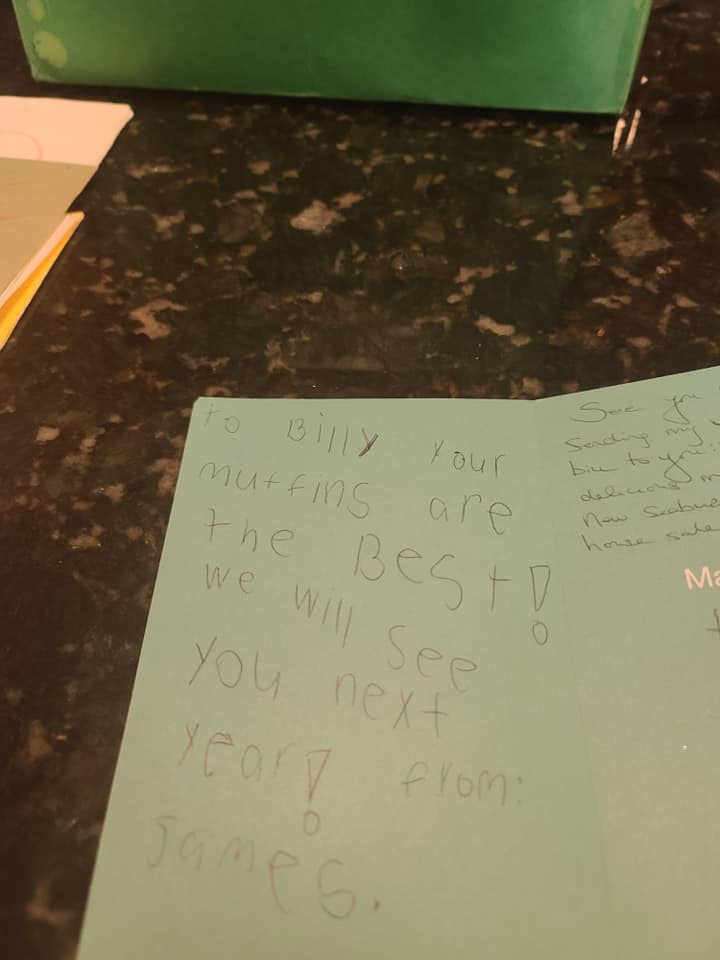 to Billy Your
muffins are
the Best!
we will see
you next
year! from:
James.
See you
Sending my
to you
delicious
New
house sale
Ma